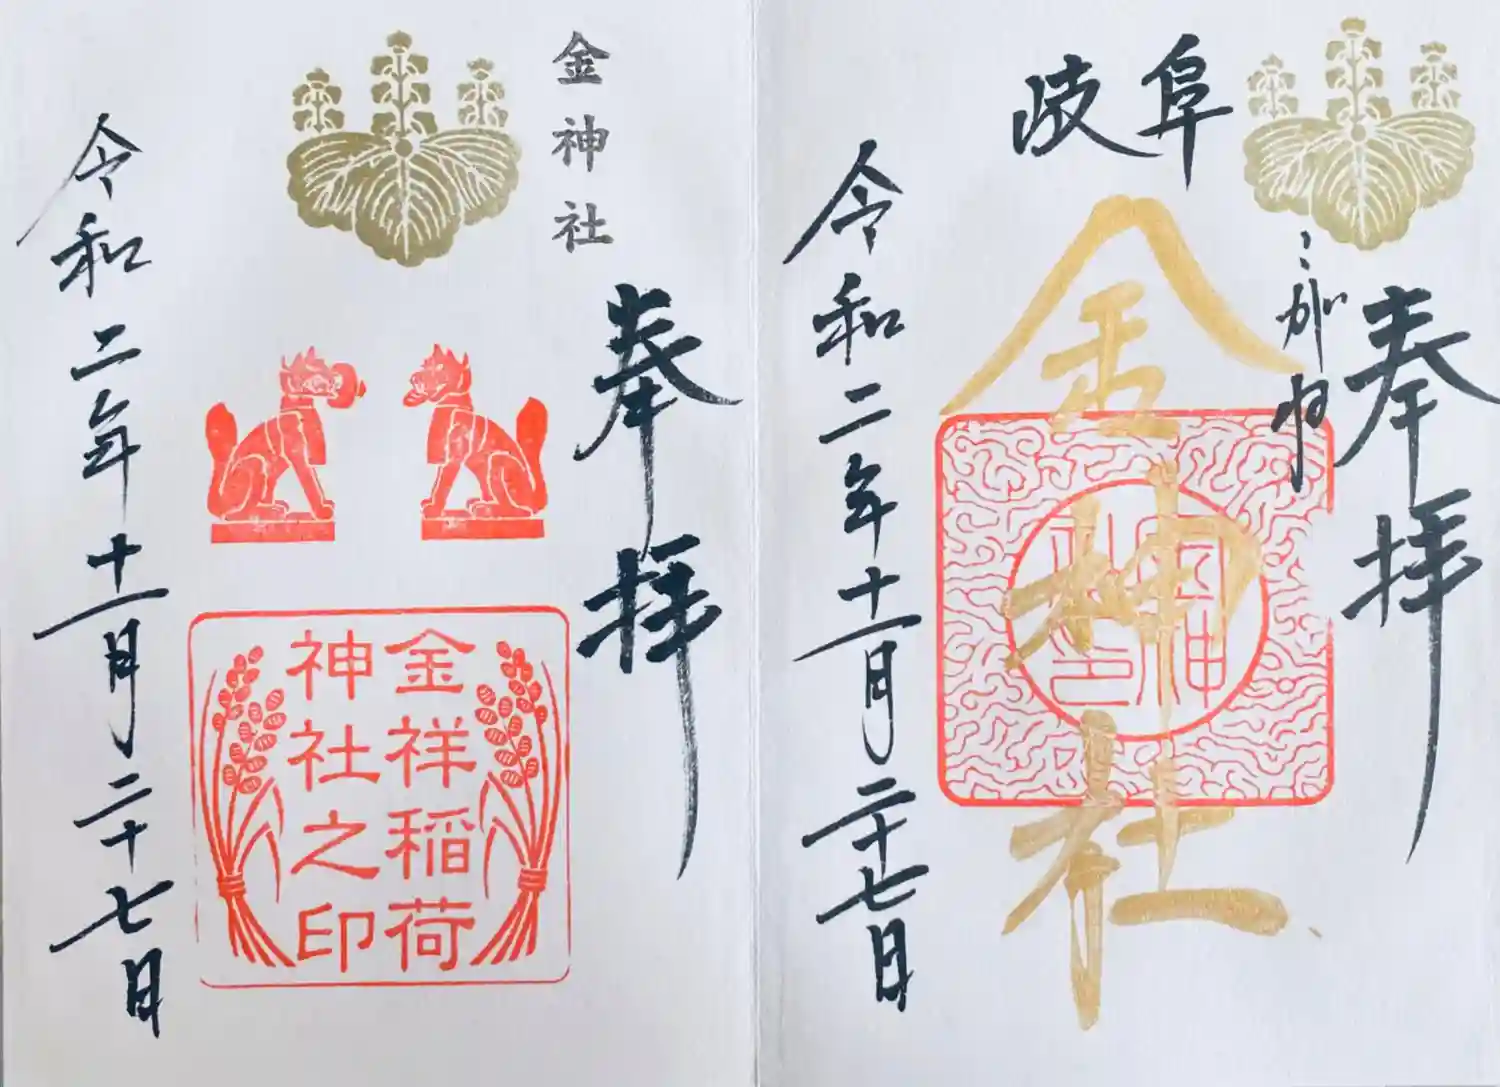 奉拝
こがね
岐阜
金神社
令和二年十一月二十七日
金神社
奉拝
金祥稲荷
神社之印
令和二年十一月二十七日